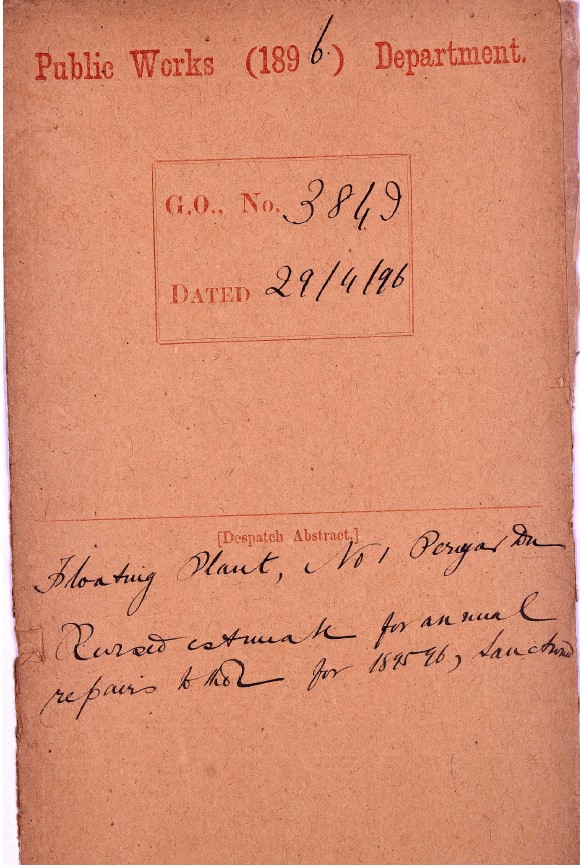 Public Works (1896) Department.
G.O., No. 3849
DATED 29/4/96
[Despatch Abstract.]
Floating Plant, No 1 Peryar Dn
Revised estimate for annual
repairs to the for 1895 96, Sanctioned